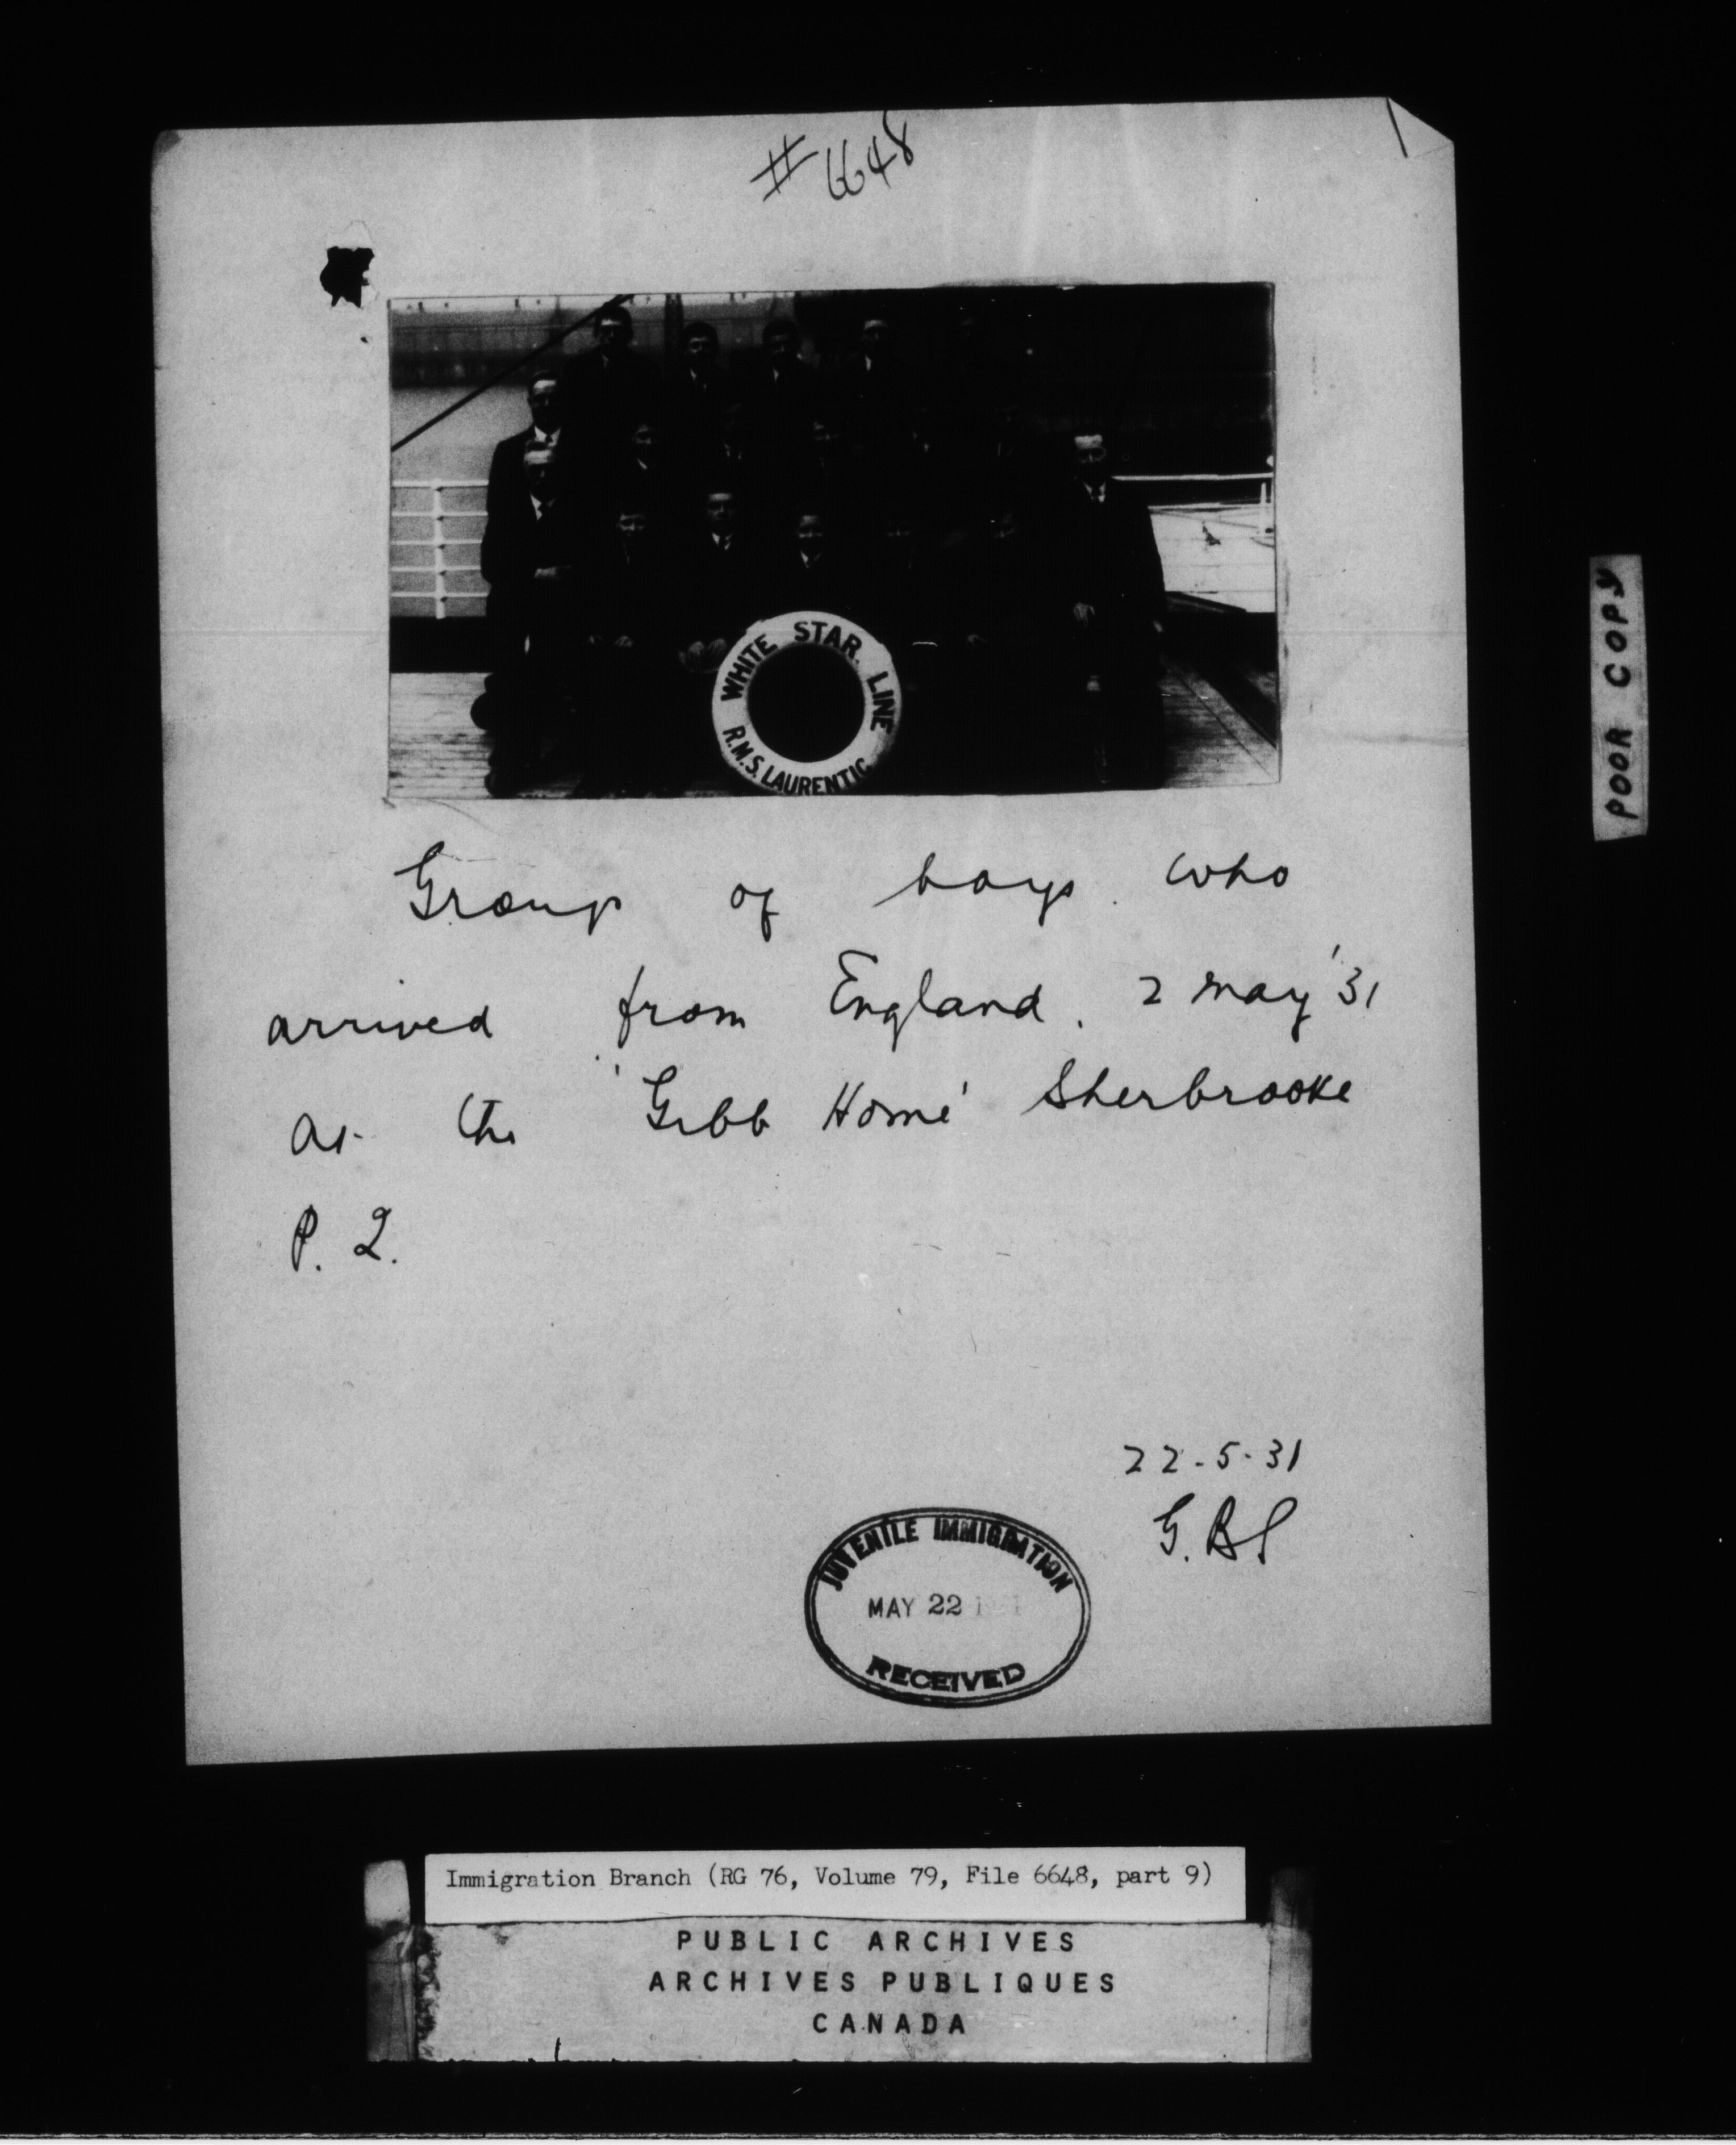 #6648
WHITE STAR LINE
R.M.S. LAURENTIC
Group of boys who
arrived from England. 2 May '31
at the 'Gibb Home' Sherbrooke
P.Q.
22-5-31
JUVENILE IMMIGRATION
MAY 22
RECEIVED
POOR COPY
Immigration Branch (RG 76, Volume 79, File 6648, part 9)
PUBLIC ARCHIVES
ARCHIVES PUBLIQUES
CANADA